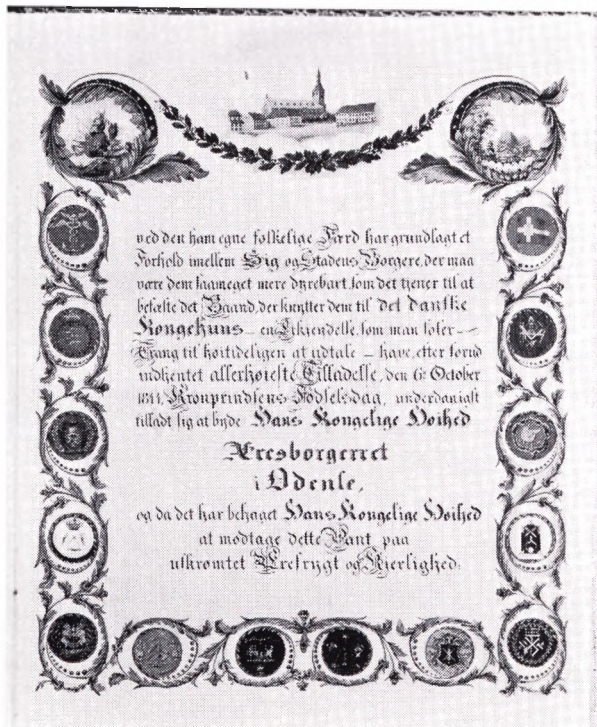 ved den ham egne folkelige Færd har grundlagt et
Forhold imellem Sig og Stadens Borgere, der maa
være dem saameget mere dyrebart som det tjener til at
befæste det Baand, der knytter dem til det danske
Kongehuus – en Erkjendelse, som man føler
Trang til høitideligen at udtale – have, efter forud
indhentet allerhøieste Tilladelse, den 6te October
Kronprindsens Fødselsdag, underdanigst
tilladt sig at byde Hans Kongelige Høihed
Æresborgerret
i Odense,
og da det har behaget Hans Kongelige Høihed
at modtage dette Pant paa
uskrømtet Ærefrygt og Kjerlighed.